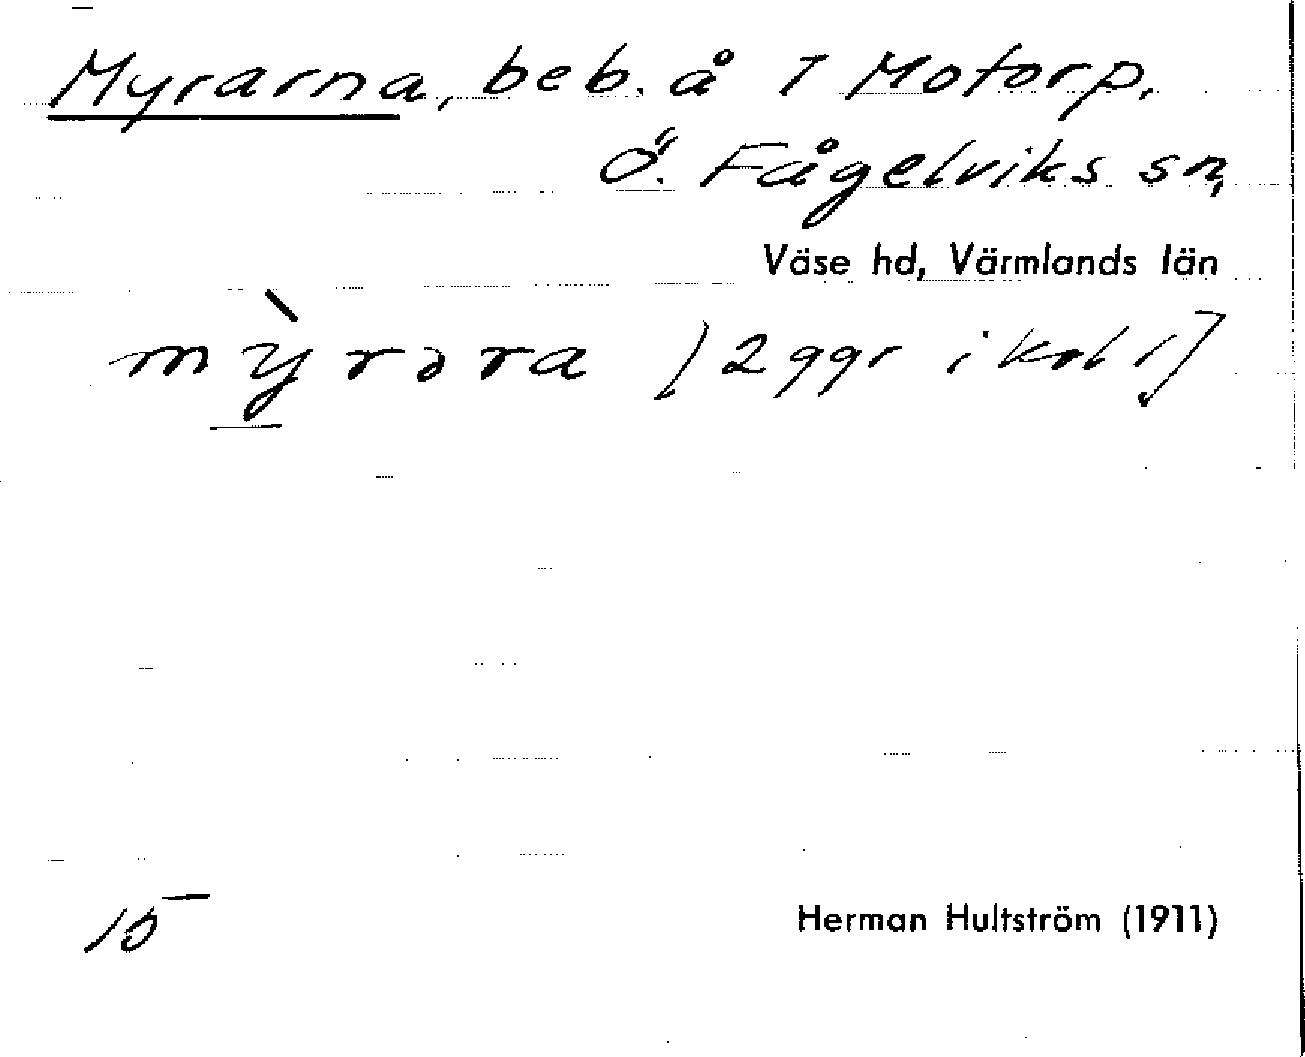 Myrarna, beb. å 7 Motorp,
Ö. Fågelviks sn,
Väse hd, Värmlands län
mỳrəra [2 ggr i kol 1]
15
Herman Hultström (1911)